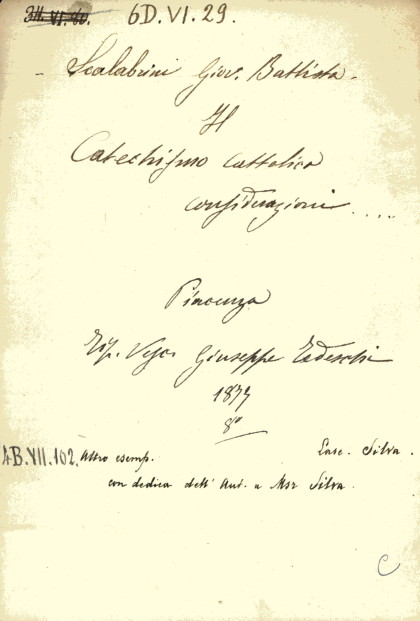 3H.VI.40. 6D.VI.29.
Scalabrini Giov. Battista.
Il
Catechismo cattolico
considerazioni....
Piacenza
Tip. Vesc. Giuseppe Tedeschi
1877
8°
4B.VII.102. Altro esemp. Lasc. Silva.
con dedica dell' Aut. a Msr Silva.
C